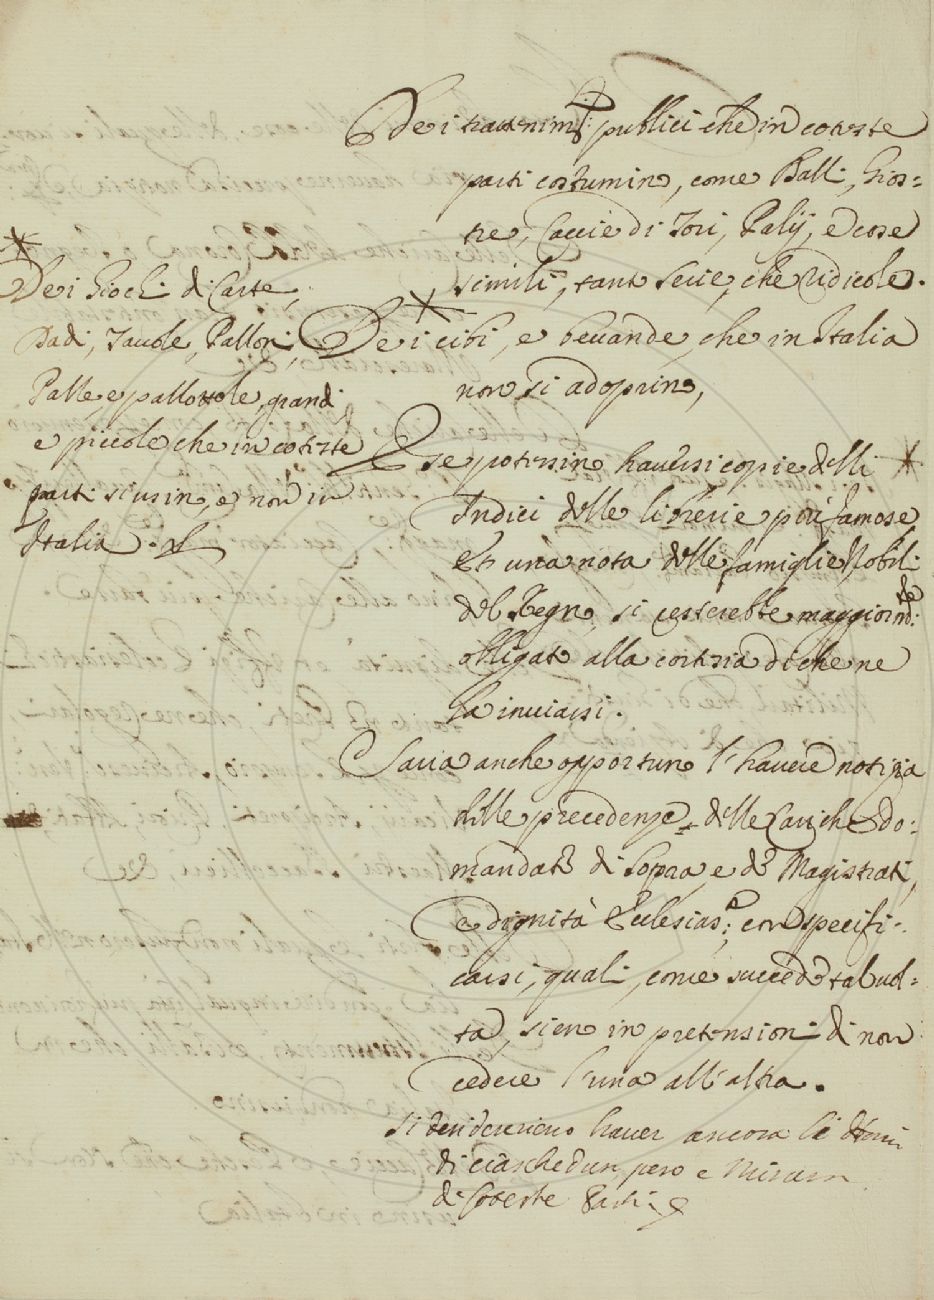 Dei trattenim.ti publici che in coteste
parti costumino, come Balli, Gios=
tre, Caccie di Tori, Palij, e cose
simili, tanto serie, che ridicole.
Dei Giochi di Carte,
Dadi, Tauole, Palloni,
Palle, e pallottole, grandi
e piccole che in coteste
parti si usino, e non in
Italia.
Dei cibi, e beuande, che in Italia
non si adoprino,
E se potessino hauersi copie delli
Indici delle librerie più famose
et una nota delle famiglie Nobili
del Regno, si resterebbe maggiorm.te
obligato alla cortesia di che ne
fa inuiarsi.
Saria anche opportuno l'hauere notizia
delle precedenze delle Cariche do=
mandate di sopra, e de Magistrati,
e dignità Eclesias.e; con specifi=
carsi, quali, come succede tal uol=
ta, sieno in pretensioni di non
cedere l'una all'altra.
Si desidererieno hauer ancora li Nomi
di ciaschedun peso e Misura
di Coteste Parti